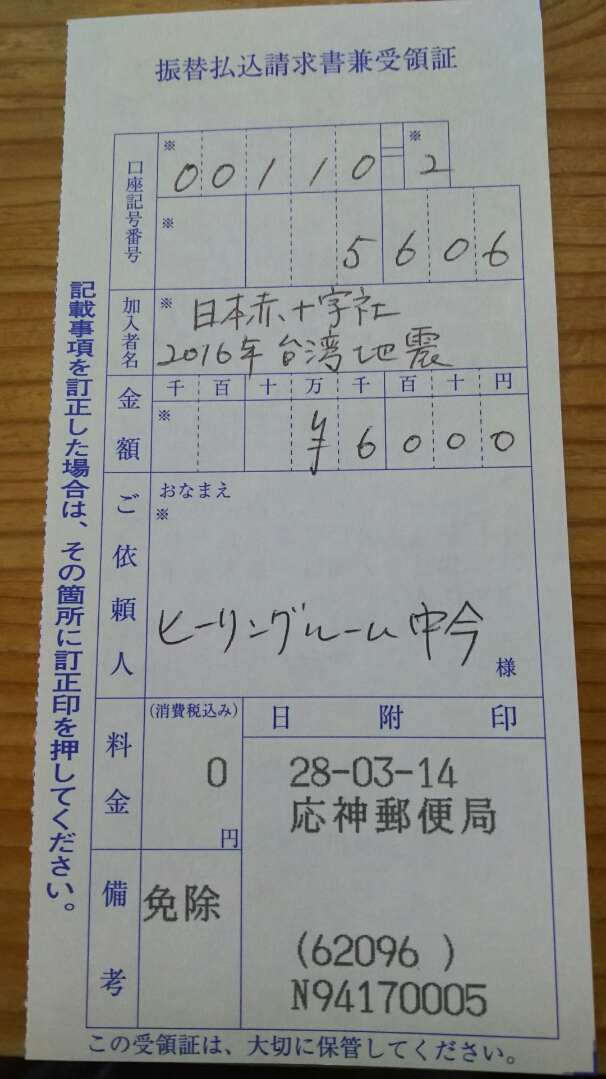 振替払込請求書兼受領証
口座記号番号
※ 00110 ※ 2
※ 5606
加入者名
※ 日本赤十字社
2016年台湾地震
金額
千 百 十 万 千 百 十 円
※ ¥6000
ご依頼人
おなまえ
※
ヒーリングルーム中今
様
料金
(消費税込み)
0
円
日附印
28-03-14
応神郵便局
(62096 )
N94170005
備考
免除
この受領証は、大切に保管してください。
記載事項を訂正した場合は、その箇所に訂正印を押してください。